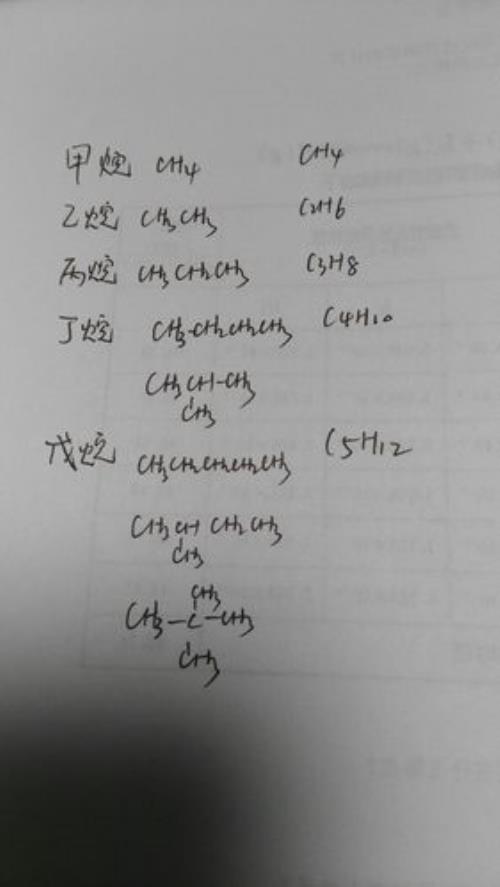 甲烷 CH4 CH4
乙烷 CH3CH3 C2H6
丙烷 CH3CH2CH3 C3H8
丁烷 CH3-CH2CH2CH3 C4H10
CH3CH-CH3
CH3
戊烷 CH3CH2CH2CH2CH3 C5H12
CH3CH CH2CH3
CH3
CH3
CH3-C-CH3
CH3